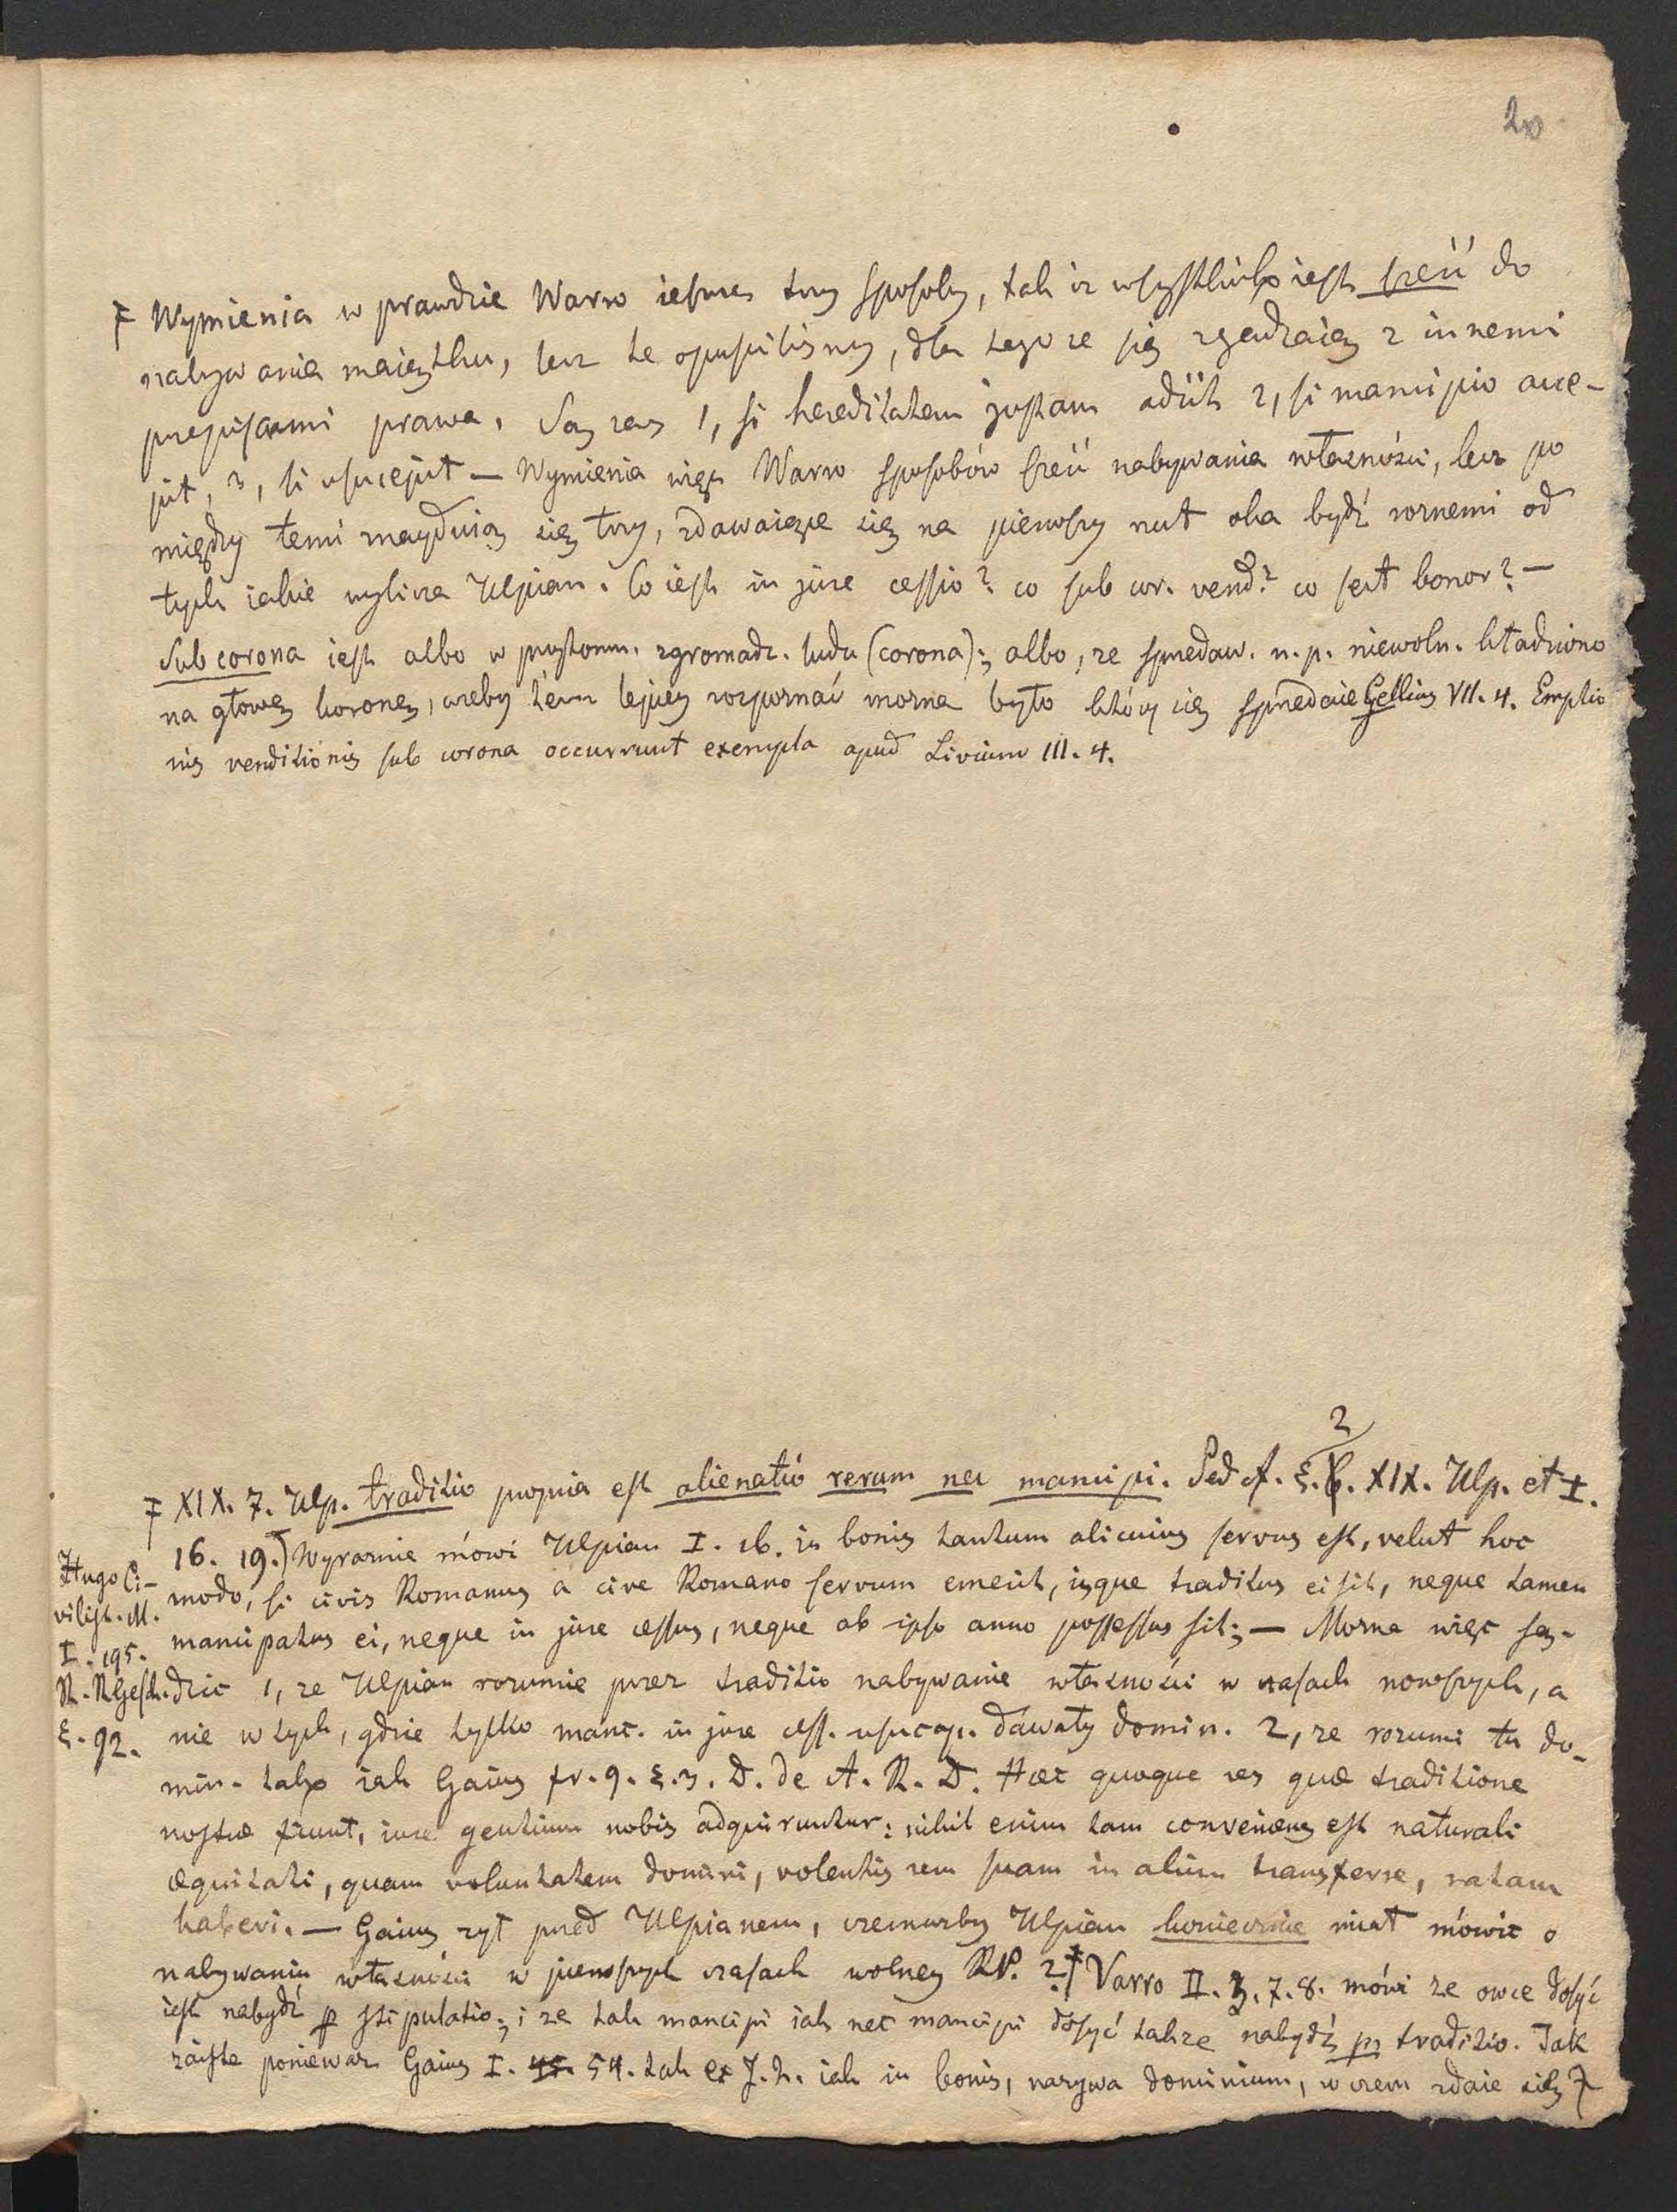 20
Wymienia w prawdzie Warro ieszcze trzy sposoby, tak iż wszystkich iest sześć do
nabywania maiątku, lecz te opuściliśmy, dla tego że się zgadzaią z innemi
przepisami prawa. Są zaś 1, si hereditatem justam adiit 2, si mancipio acce-
pit, 3, si usucepit — Wymienia więc Warro sposobów sześć nabywania własności, lecz po
między temi znayduią się trzy, zdawaiące się na pierwszy rzut oka bydź rożnemi od
tych iakie wylicza Ulpian. Co iest in jure cessio? co sub cor. vend? co sect bonor? —
Sub corona iest albo w przytomn. zgromadz. ludu (corona); albo, że sprzedaw. n. p. niewoln. kładziono
na głowę koronę, żeby tém lepiey rozpoznać można było który się sprzedaie Gellius VII. 4. Emptio
nis venditionis sub corona occurrunt exempla apud Livium III. 4.
2
XIX. 7. Ulp. traditio propria est alienatio rerum nec mancipi. Sed cf. §. XIX. Ulp. et I.
16. 19.) Wyraznie mówi Ulpian I. 16. in bonis tantum alicuius servus est, velut hoc
modo, si civis Romanus a cive Romano servum emerit, isque traditus ei sit, neque tamen
mancipatus ei, neque in jure cessus, neque ab ipso anno possessus sit; — Można więc są-
dzic 1, że Ulpian rozumie przez traditio nabywanie własności w czasach nowszych, a
nie w tych, gdzie tylko manc. in jure cess. usucap. dawały domin. 2, że rozumi tu do-
min. tako iak Gaius fr. 9. §. 3. D. de A. R. D. Haec quoque res quae traditione
nostrae fiunt, iure gentium nobis adquiruntur: nihil enim tam conveniens est naturali
aequitati, quam voluntatem domini, volentis rem suam in alium transferre, ratam
haberi. — Gaius żył przed Ulpianem, czemużby Ulpian koniecznie miał mówic o
nabywaniu własności w pierwszych czasach wolney RP. ? Varro II. 3. 7. 8. mówi że owce dosyć
iest nabydź p stipulatio; i że tak mancipi iak nec mancipi dosyć także nabydź prz traditio. Jak
zaiste ponieważ Gaius I. 54. tak ex J. Q. iak in bonis, nazywa dominium, w czem zdaie się
Hugo Ci-
vilist. M.
I. 195.
R. RGesch.
§. 92.